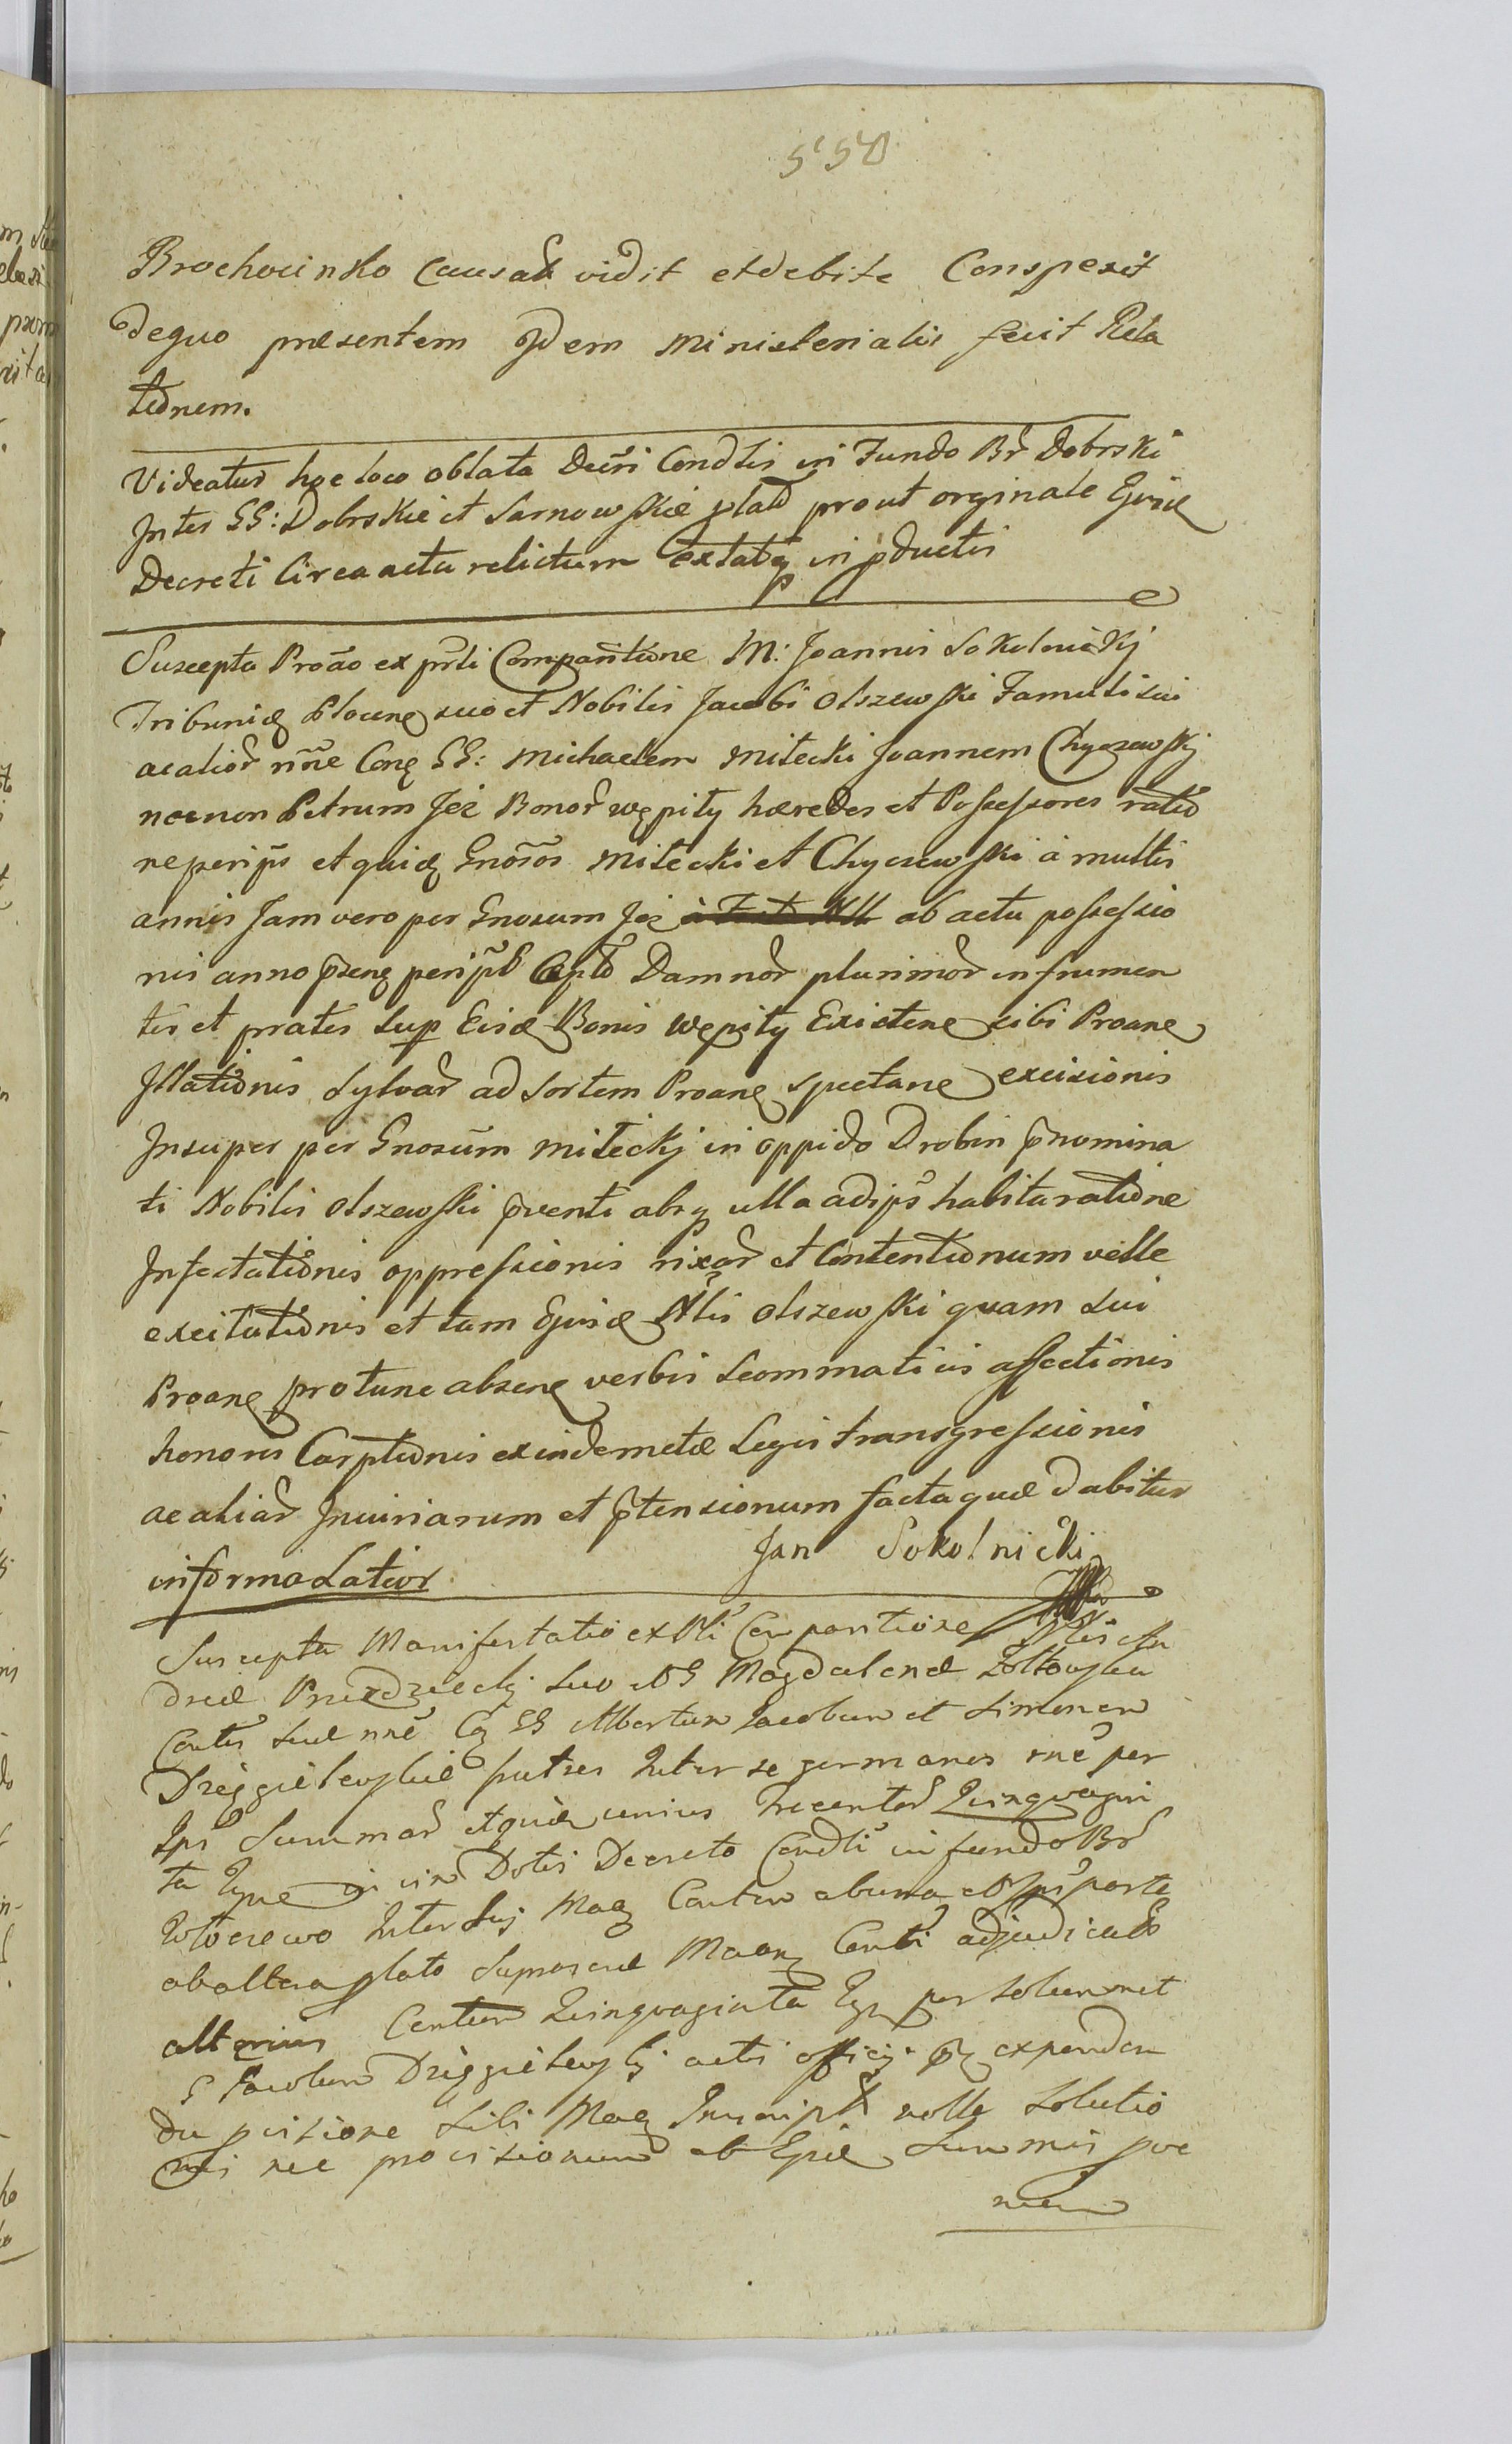 550
Brochocinsko causat vidit et debite Conspexit
de quo præsentem Idem Ministerialis fecit Rela
tionem.
Videatur hoc loco oblata Decri Condlis in Fundo Br Dobrski
Inter GG: Dobrskie et Sarnowskie plati prout orginale Ejusd
Decreti Circa acta relictum extatq in pductis
Suscepta Proao ex prli Comparitione M: Joannis Sokolnickj
Tribunid Plocens suo et Nobilis Jacobi Olszewski Famuli sui
ac alior nne Cong GG: Michaelem Miłecki Joannem Chyczewskj
necnon Petrum Jeż Bonor Wępiły hæredes et Possessores ratio
ne perips et quid Gnosos Miłecki et Chyczewski a multis
annis Jam vero per Gnosum Jeż ab actu possessio
nis anno præsen peripl Capto Damnor plurimor in frumen
tis et pratis sup Eisd Bonis Wępiły Existen sibi Proane
Illationis Sylvar ad Sortem Proane spectane excisionis
Insuper per Gnosum Miłeckj in oppido Drobin pnomina
ti Nobilis Olszewski pventi absq ulla ad ips habita ratione
Insectationis oppressionis rixar et Contentionum velle
excitationis et tam Ejusd Nlis Olszewski quam Sui
Proane pro tunc absene verbis Scommaticis affectionis
honoris Carptionis exinde metæ Legis transgressionis
ac aliar Iniuriarum et ptensionum facta quæ dabitur
informa Latior Jan Sokolnicki
Suscepta Manifestatio ex Pli Comparitione Nlis An
dreæ Przedzieckj suo et G Magdalenæ Zołtowska
Contis suæ nne Cq GG Albertum Jacobum et Simonem
Dzięgielewskie fratres Inter se germanos rne per
Ips Summar et quid unius Trecentor Quinquagin
ta in vim Dotis Decreto Condli in fundo Br
Inter Maq Contem ab una et Ips parte
ab altera plato Maane Conti adjudicato
alterius Centum Quinquaginta per
G Jacobum Dzięgielewskj actis officij expenden
Sibi Maq Inscript nolle Solutio
nis nec provisionum ab Ejsd Summis pve
nien